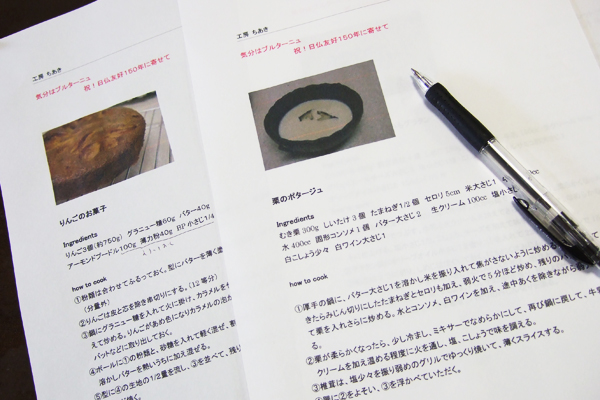 工房 ちあき
気分はブルターニュ
祝!日仏友好150年に寄せて
りんごのお菓子
Ingredients
りんご3個(約750g) グラニュー糖60g バター40g
アーモンドプードル100g 薄力粉40g BP小さじ1/4
how to cook
①粉類は合わせてふるっておく。型にバターを薄く塗
(分量外)
②りんごは皮と芯を除き串切りにする。(12等分)
③鍋にグラニュー糖を入れて火に掛け、カラメルを
えて炒める。りんごがあめ色になりカラメルの
バットなどに取り出しておく。
④ボールに①の粉類と、砂糖を入れて軽く混ぜ、
溶かしバターを熱いうちに加え混ぜる。
⑤型に④の生地の1/2量を流し、③を並べて、残り
工房 ちあき
気分はブルターニュ
祝!日仏友好150年に寄せて
栗のポタージュ
Ingredients
むき栗 300g しいたけ3個 たまねぎ1/2個 セロリ5cm 米大さじ1
水 400cc 固形コンソメ1個 バター大さじ2 生クリーム100cc 塩小さ
白こしょう少々 白ワイン大さじ1
how to cook
①厚手の鍋に、バター大さじ1を溶かし米を振り入れて焦がさないように炒め
きたらみじん切りにしたたまねぎとセロリも加え、弱火で5分ほど炒め、残りの
て栗を入れさらに炒める。水とコンソメ、白ワインを加え、途中あくを除きながら
②栗が柔らかくなったら、少し冷まし、ミキサーでなめらかにして、再び鍋に戻して、牛
クリームを加え温める程度に火を通し、塩、こしょうで味を調える。
③椎茸は、塩少々を振り弱めのグリルでゆっくり焼いて、薄くスライスする。
④器に②をよそい、③を浮かべていただく。